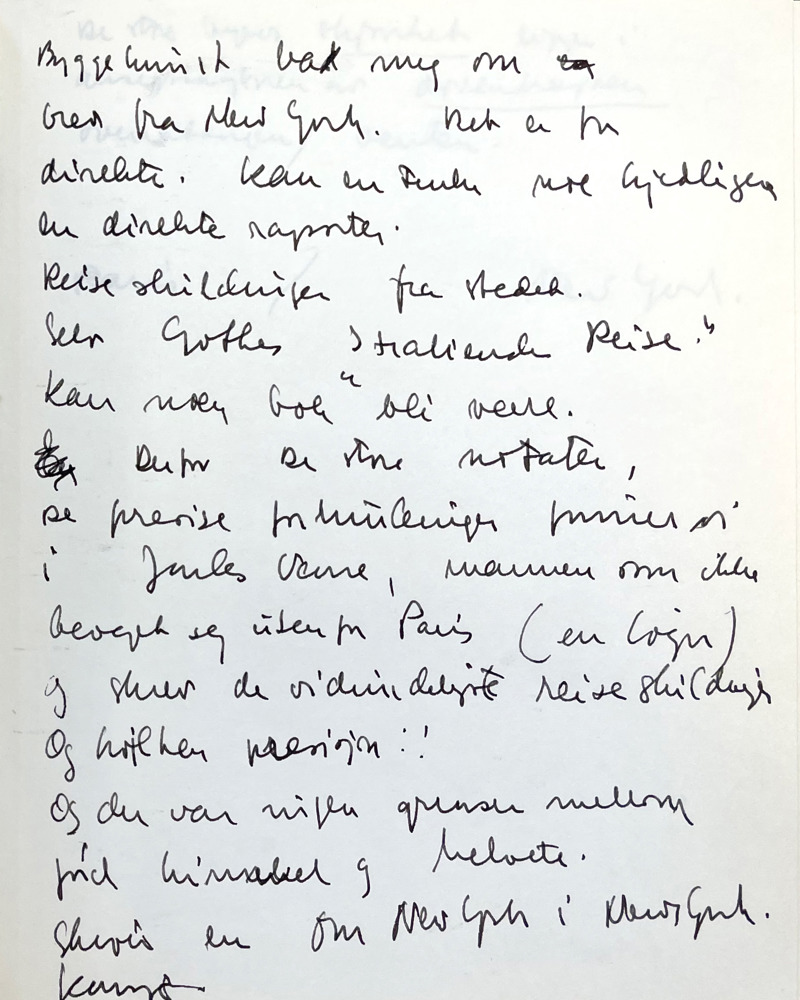 Byggekunst bad meg om
brev fra New York. Det er for
direkte. Kan en tenke noe kjedligere
en direkte raporter.
Reise skildringer fra stedet.
Selv Gothes Italienische Reise."
Kan noen bok "bli verre.
Derfor De store notater,
De presise forkunninger finner vi
i Jules Verne, mannen som ikke
beveget seg utenfor Paris (en løgn)
og skrev de vidunderligste reiseskildringer
Og hvilken presisjon!!
Og der var ingen grenser mellom
jord himmel og helvete.
Skrive en om New York i New York.